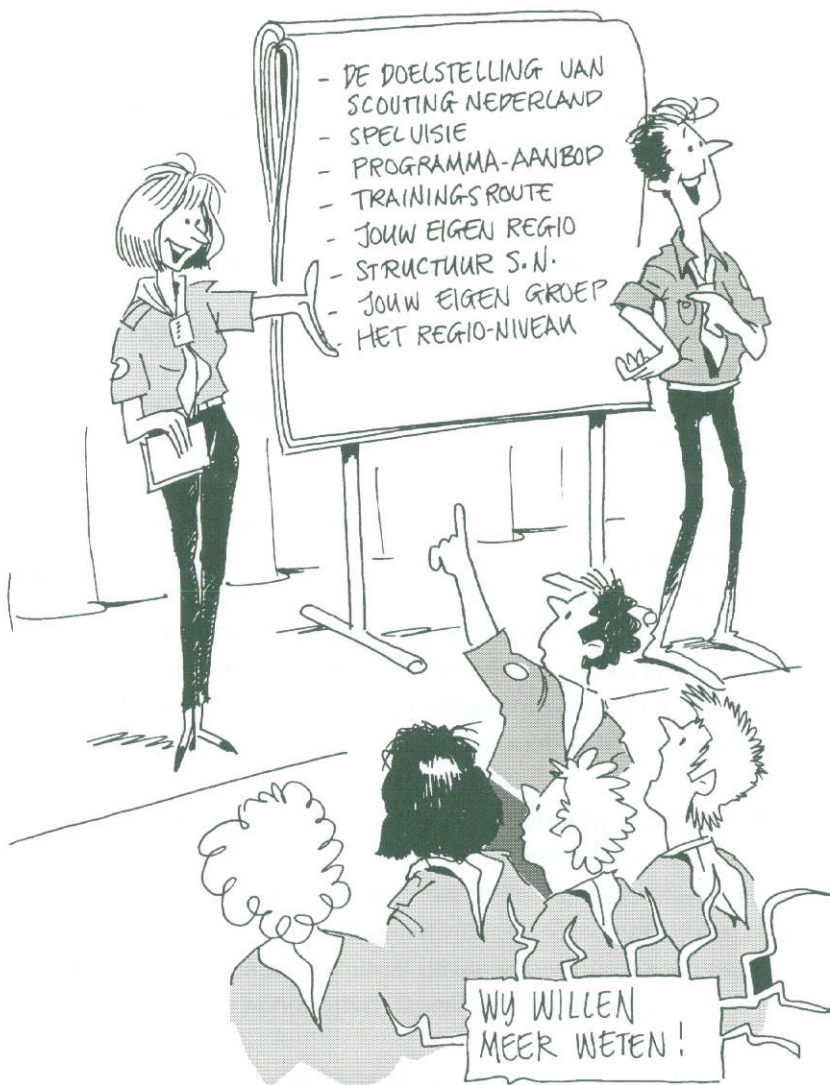 - DE DOELSTELLING VAN
SCOUTING NEDERLAND
- SPELVISIE
- PROGRAMMA-AANBOD
- TRAININGSROUTE
- JOUW EIGEN REGIO
- STRUCTUUR S.N.
- JOUW EIGEN GROEP
- HET REGIO-NIVEAU
WIJ WILLEN
MEER WETEN!